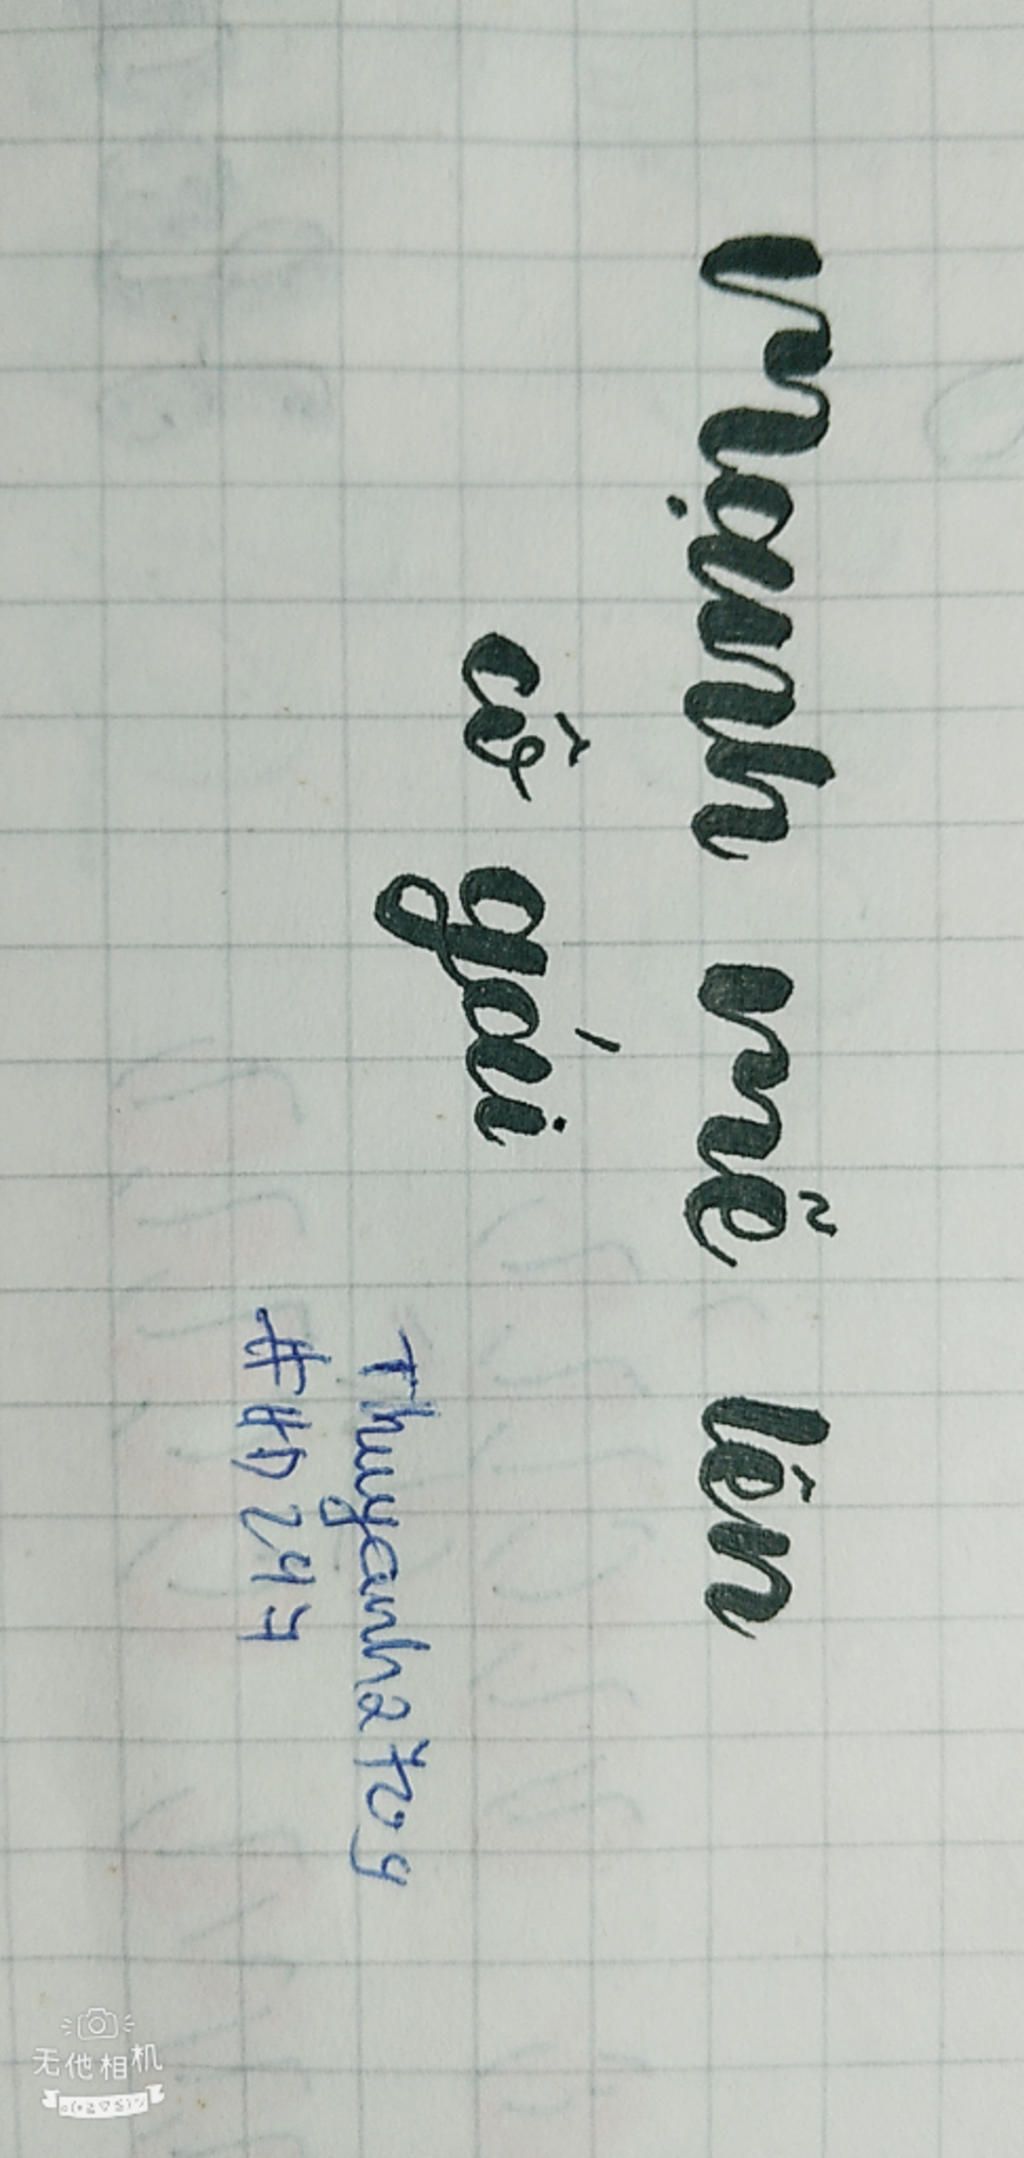 mạnh mẽ lên
cô gái
Thuyanh2709
#HD249
无他相机